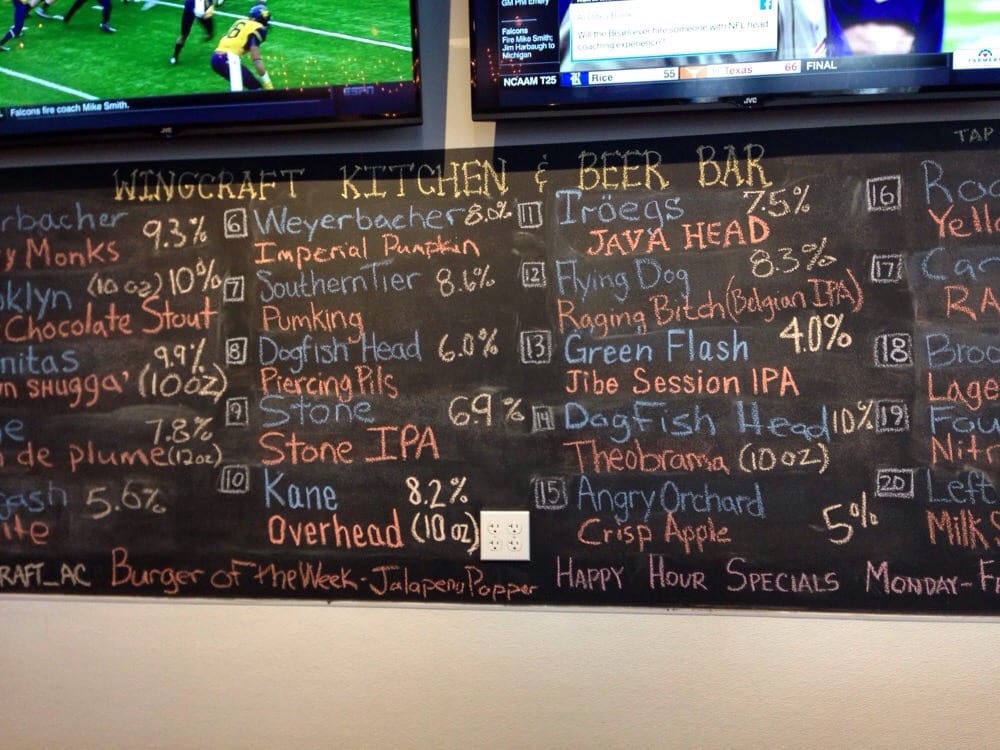 GM Phil Emery
Falcons
Fire Mike Smith;
Jim Harbaugh to
Michigan
Will the Bears ever hire someone with NFL head
coaching experience?
NCAAM T25
Rice 55 Texas 66 FINAL
Falcons fire coach Mike Smith.
ESPN
JVC
JVC
TAP
WINGCRAFT KITCHEN & BEER BAR
rbacher 9.3%
y Monks
oklyn (10oz) 10%
Chocolate Stout
nitas 9.9%
n SHUGGA' (10oz)
e 7.8%
de plume (12oz)
gash 5.6%
ite
6 Weyerbacher 8.0%
Imperial Pumpkin
7 Southern Tier 8.6%
Pumking
8 Dogfish Head 6.0%
Piercing Pils
9 Stone 69%
Stone IPA
10 Kane 8.2%
Overhead (10oz)
11 Tröegs 7.5%
JAVA HEAD
12 Flying Dog 8.3%
Raging Bitch (Belgian IPA)
13 Green Flash 4.0%
Jibe Session IPA
14 DogFish Head 10%
Theobrama (10oz)
15 Angry Orchard
Crisp Apple 5%
16 Roc
Yello
17 Car
RA
18 Broo
Lage
19 Fou
Nitr
20 Left
Milk S
RAFT_AC Burger of the Week - Jalapeno Popper HAPPY HOUR SPECIALS MONDAY-FR